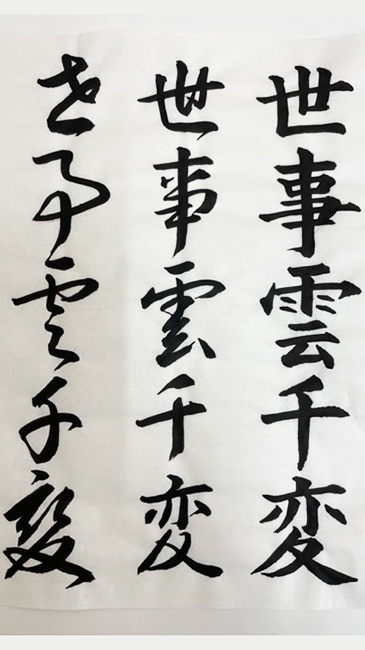 世事雲千変
世事雲千変
世事雲千変